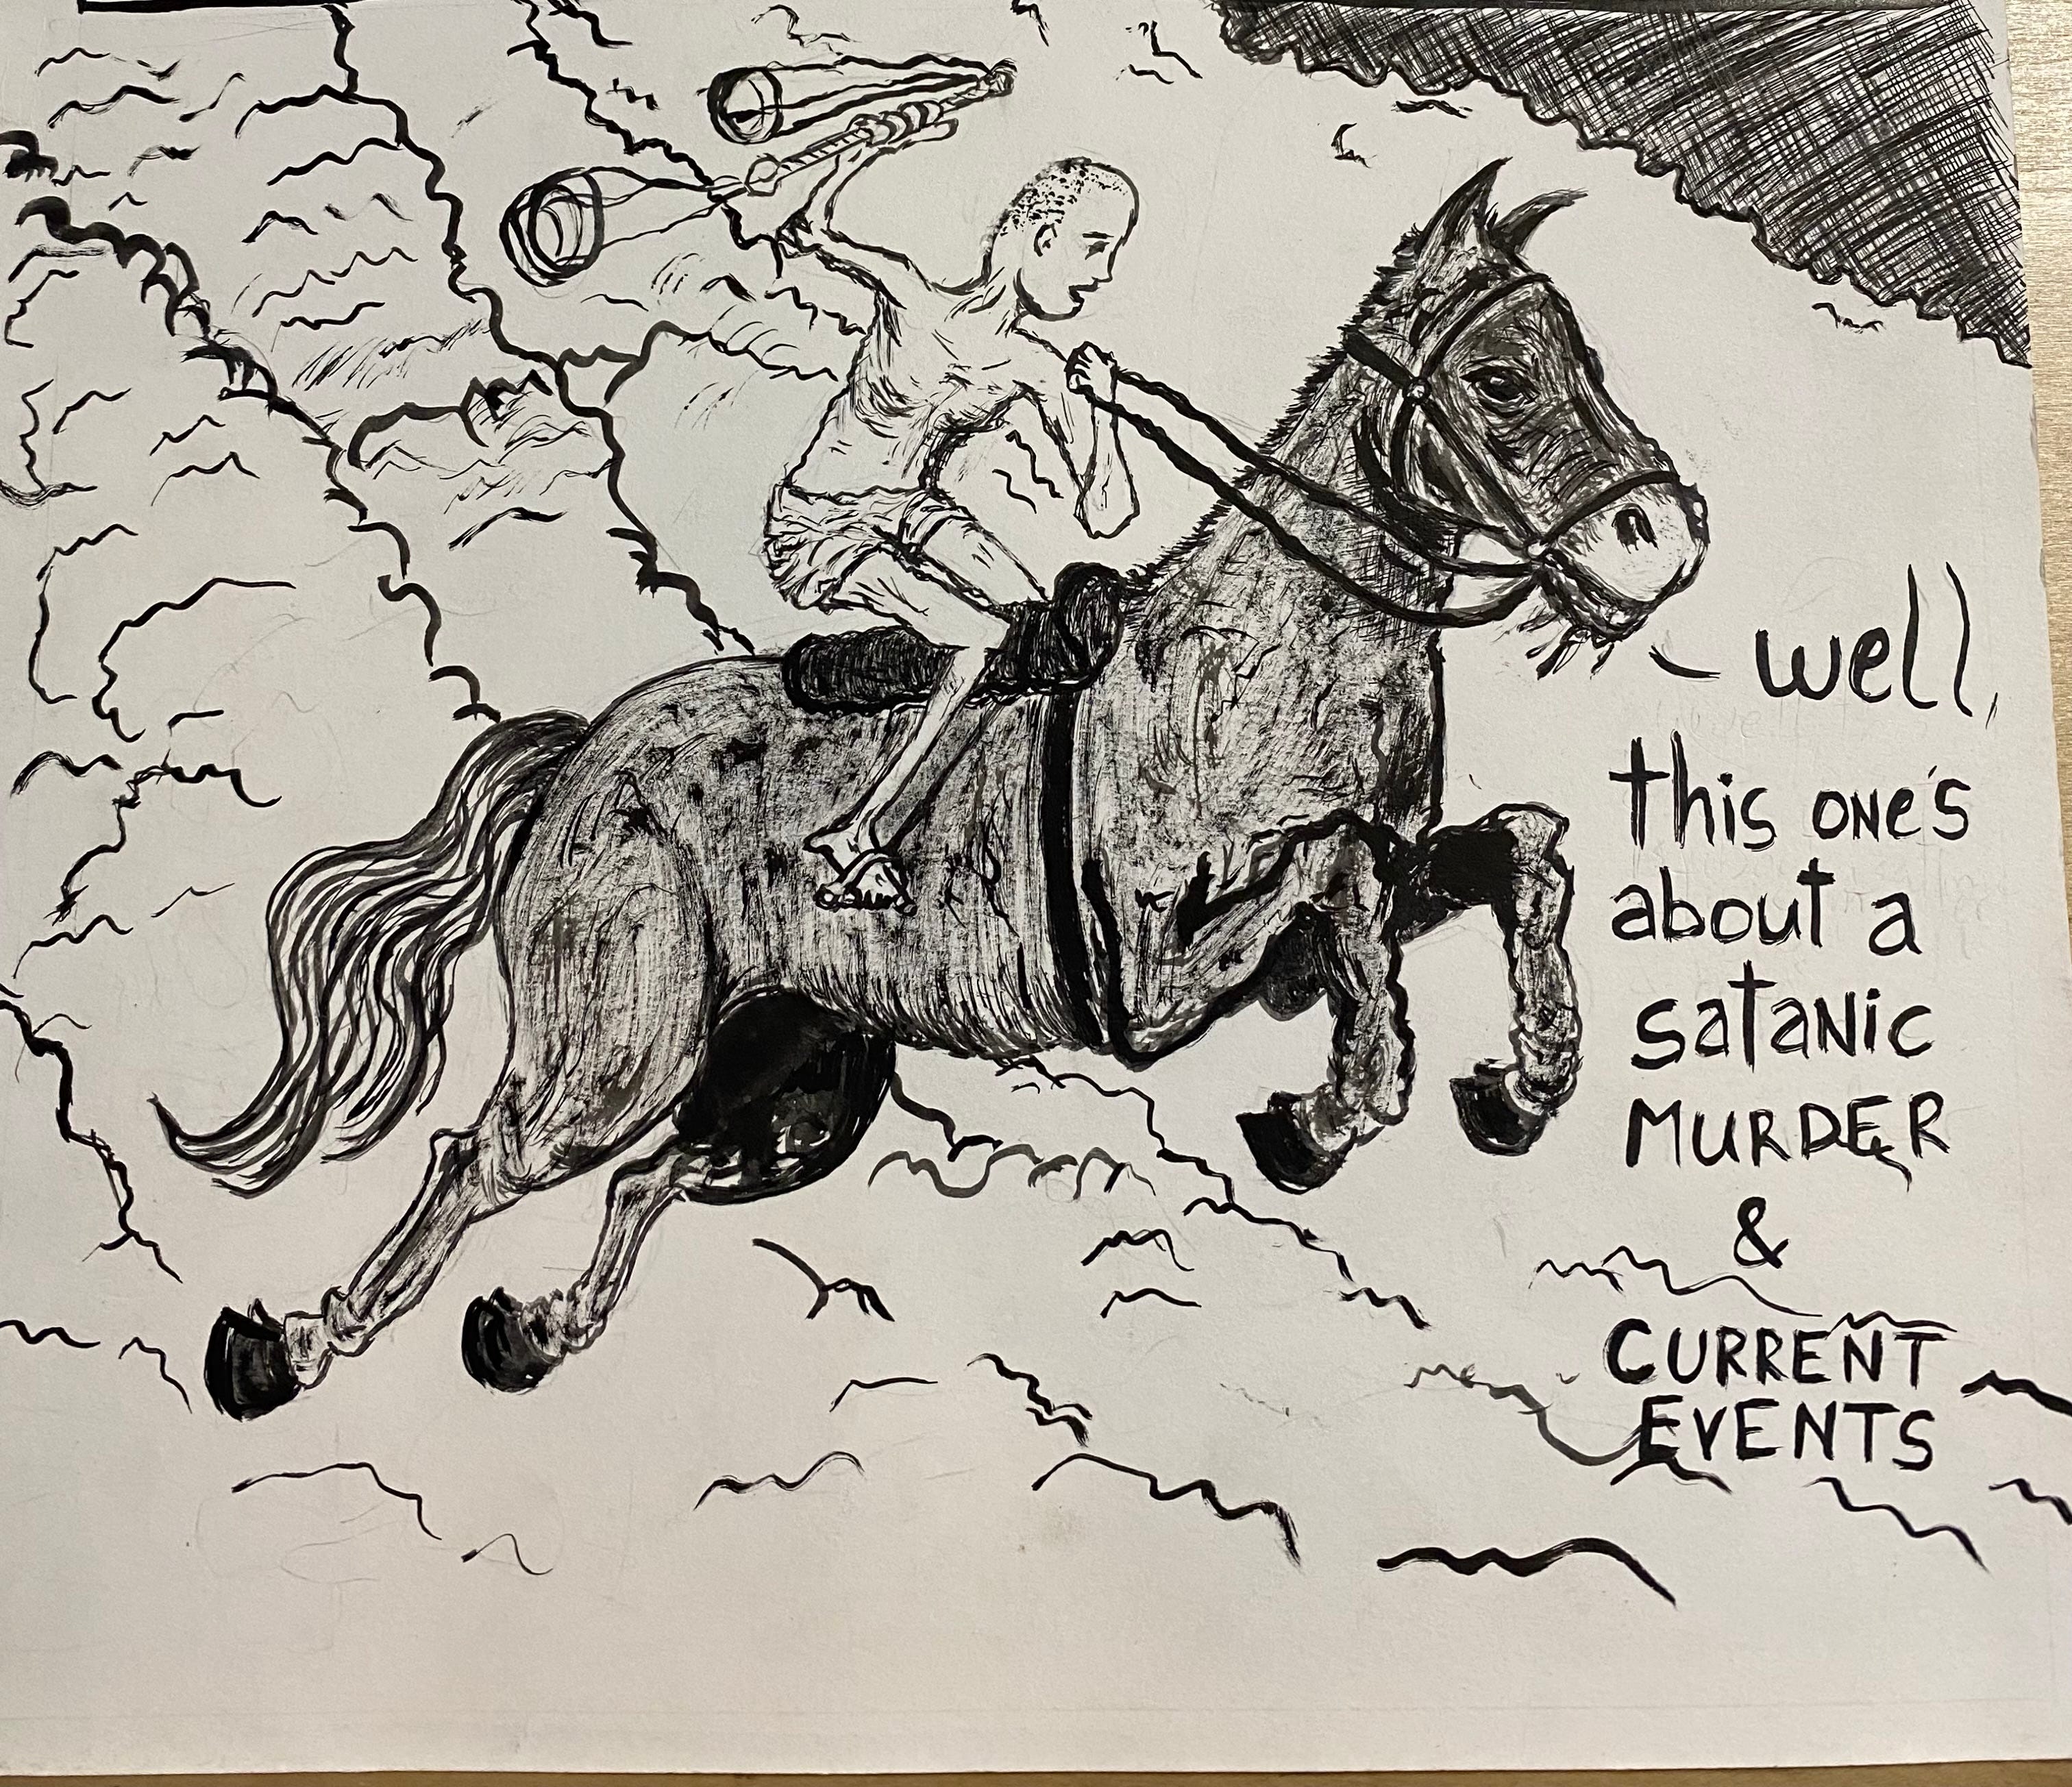 well,
this one's
about a
satanic
MURDER
&
CURRENT
EVENTS